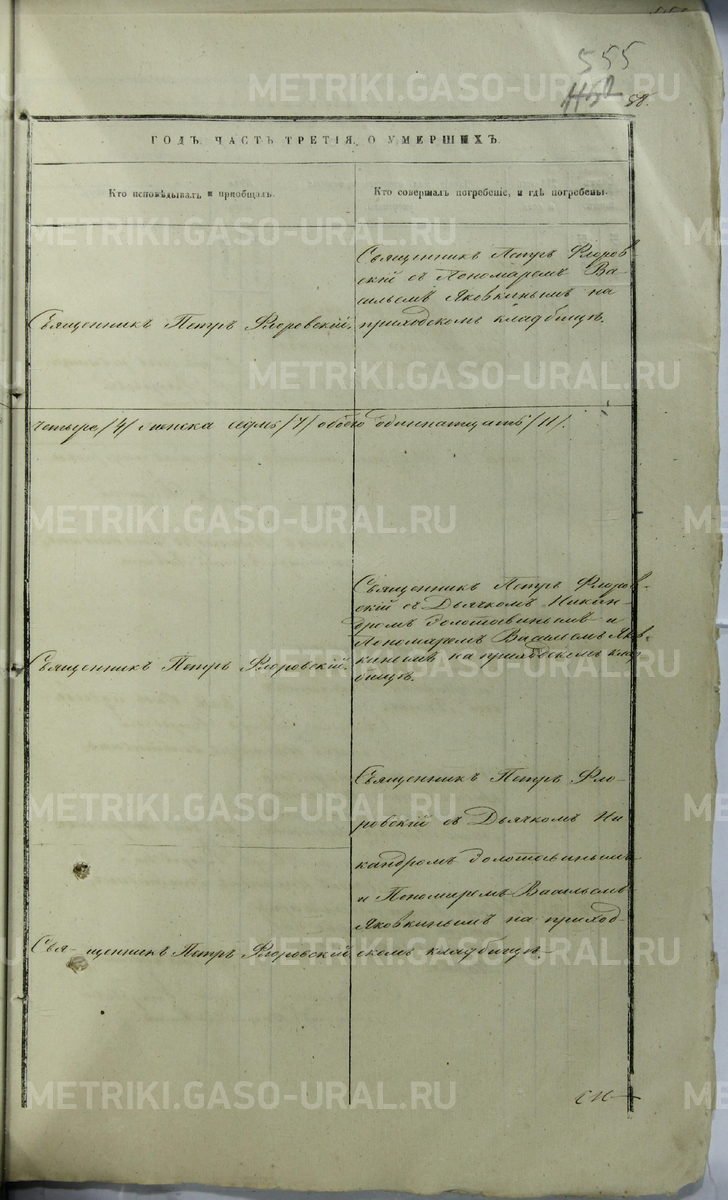 555
58.
METRIKI.GASO-URAL.RU
ГОДЪ, ЧАСТЬ ТРЕТІЯ, О УМЕРШИХЪ.
Кто исповѣдывалъ и пріобщалъ.
Кто совершалъ погребеніе, и гдѣ погребены.
Священникъ Петръ Флоровскій.
Священникъ Петръ Флоров
скій съ Пономаремъ Ва-
сильемъ Яковкинымъ на
приходскомъ кладбищѣ.
четыре /4/ женска седмь /7/ обоего одиннатцать /11/.
Священникъ Петръ Флоровскій.
Священникъ Петръ Флоров-
скій съ Дьячкомъ Никан-
дромъ Золотовинымъ и
Пономаремъ Васильемъ Яков-
кинымъ на приходскомъ клад-
бищѣ.
Свя-щенникъ Петръ Флоровскій
Священникъ Петръ Фло-
ровскій съ Дьячкомъ Ни
кандромъ Золотовинымъ
и Пономаремъ Васильемъ
Яковкинымъ на приход-
скомъ кладбищѣ.-